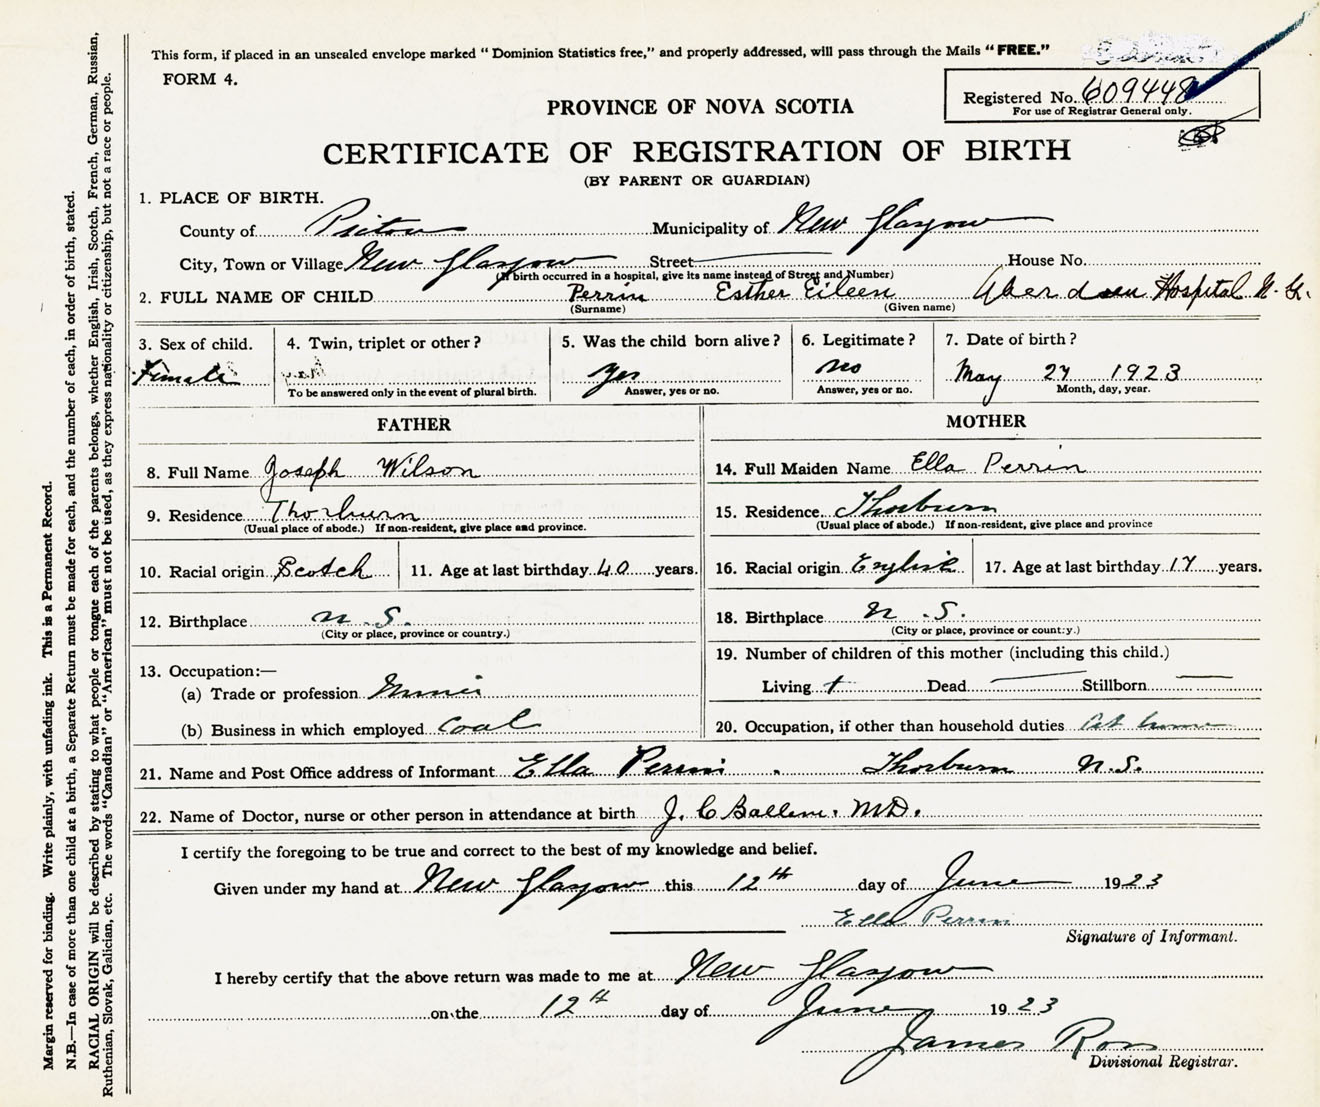 This form, if placed in an unsealed envelope marked “Dominion Statistics free,” and properly addressed, will pass through the Mails “FREE.”
FORM 4.
Registered No. 609448
For use of Registrar General only.
PROVINCE OF NOVA SCOTIA
CERTIFICATE OF REGISTRATION OF BIRTH
(BY PARENT OR GUARDIAN)
1. PLACE OF BIRTH.
County of Pictou Municipality of New Glasgow
City, Town or Village New Glasgow Street House No.
(If birth occurred in a hospital, give its name instead of Street and Number)
2. FULL NAME OF CHILD Perrin Esther Eileen Aberdeen Hospital N. G.
(Surname) (Given name)
3. Sex of child. 4. Twin, triplet or other? 5. Was the child born alive? 6. Legitimate? 7. Date of birth?
Female yes no May 27 1923
To be answered only in the event of plural birth. Answer, yes or no. Answer, yes or no. Month, day, year.
FATHER
8. Full Name Joseph Wilson
9. Residence Thorburn
(Usual place of abode.) If non-resident, give place and province.
10. Racial origin Scotch 11. Age at last birthday 40 years.
12. Birthplace N.S.
(City or place, province or country.)
13. Occupation:—
(a) Trade or profession Miner
(b) Business in which employed Coal
MOTHER
14. Full Maiden Name Ella Perrin
15. Residence Thorburn
(Usual place of abode.) If non-resident, give place and province
16. Racial origin English 17. Age at last birthday 17 years.
18. Birthplace N.S.
(City or place, province or country.)
19. Number of children of this mother (including this child.)
Living Dead — Stillborn —
20. Occupation, if other than household duties At home
21. Name and Post Office address of Informant Ella Perrin . Thorburn N.S.
22. Name of Doctor, nurse or other person in attendance at birth J. C Ballem. MD.
I certify the foregoing to be true and correct to the best of my knowledge and belief.
Given under my hand at New Glasgow this 12th day of June 1923
Ella Perrin
Signature of Informant.
I hereby certify that the above return was made to me at New Glasgow
on the 12th day of June 1923
James Ross
Divisional Registrar.
Margin reserved for binding. Write plainly, with unfading ink. This is a Permanent Record.
N.B.—In case of more than one child at a birth, a Separate Return must be made for each, and the number of each, in order of birth, stated.
RACIAL ORIGIN will be described by stating to what people or tongue each of the parents belongs, whether English, Irish, Scotch, French, German, Russian,
Ruthenian, Slovak, Galician, etc. The words “Canadian” or “American” must not be used, as they express nationality or citizenship, but not a race or people.